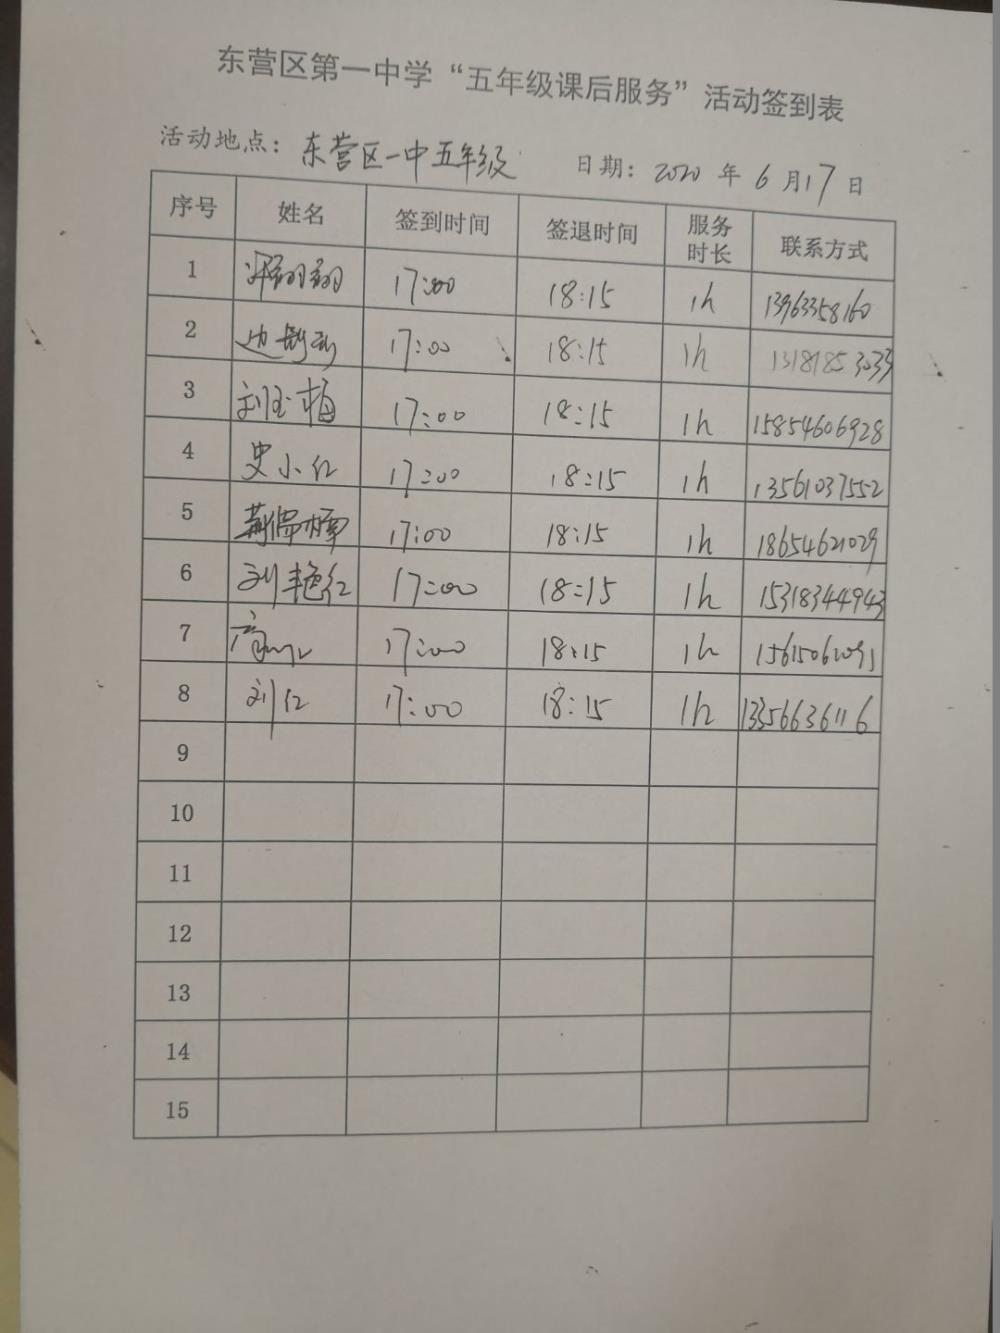 东营区第一中学“五年级课后服务”活动签到表
活动地点：东营区一中五年级 日期：2020 年 6 月 17 日
序号 姓名 签到时间 签退时间 服务时长 联系方式
1 17:00 18:15 1h 13963358160
2 17:00 18:15 1h 13181853033
3 刘玉梅 17:00 18:15 1h 15854606928
4 史小红 17:00 18:15 1h 13561037552
5 17:00 18:15 1h 18654621029
6 刘艳红 17:00 18:15 1h 15318344943
7 17:00 18:15 1h
8 刘红 17:00 18:15 1h 13356636116
9
10
11
12
13
14
15